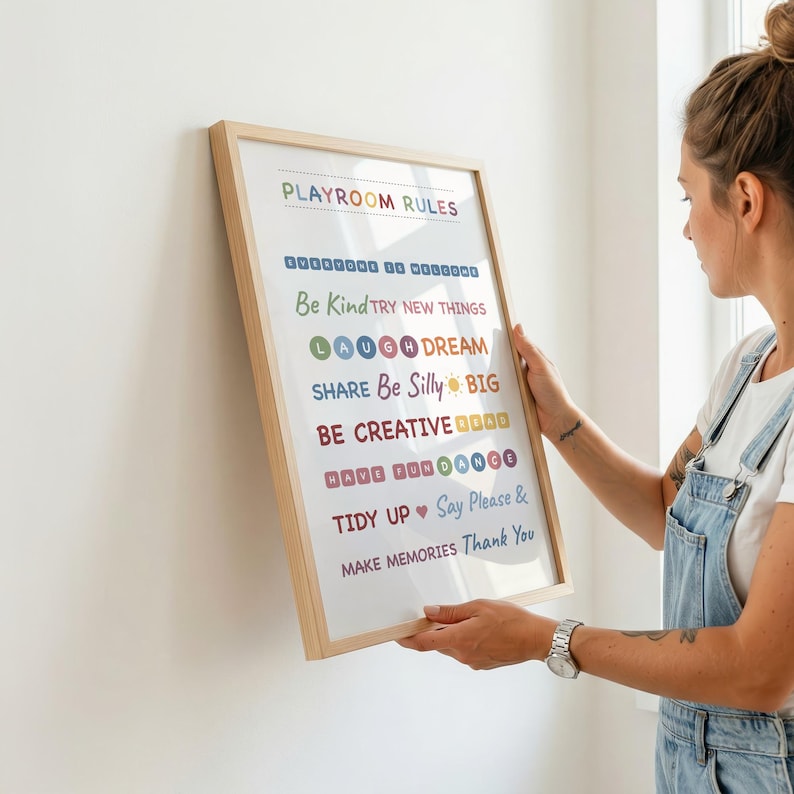 PLAYROOM RULES
EVERYONE IS WELCOME
Be Kind TRY NEW THINGS
LAUGH DREAM
SHARE Be Silly BIG
BE CREATIVE READ
HAVE FUN DANCE
TIDY UP ♥ Say Please &
MAKE MEMORIES Thank You